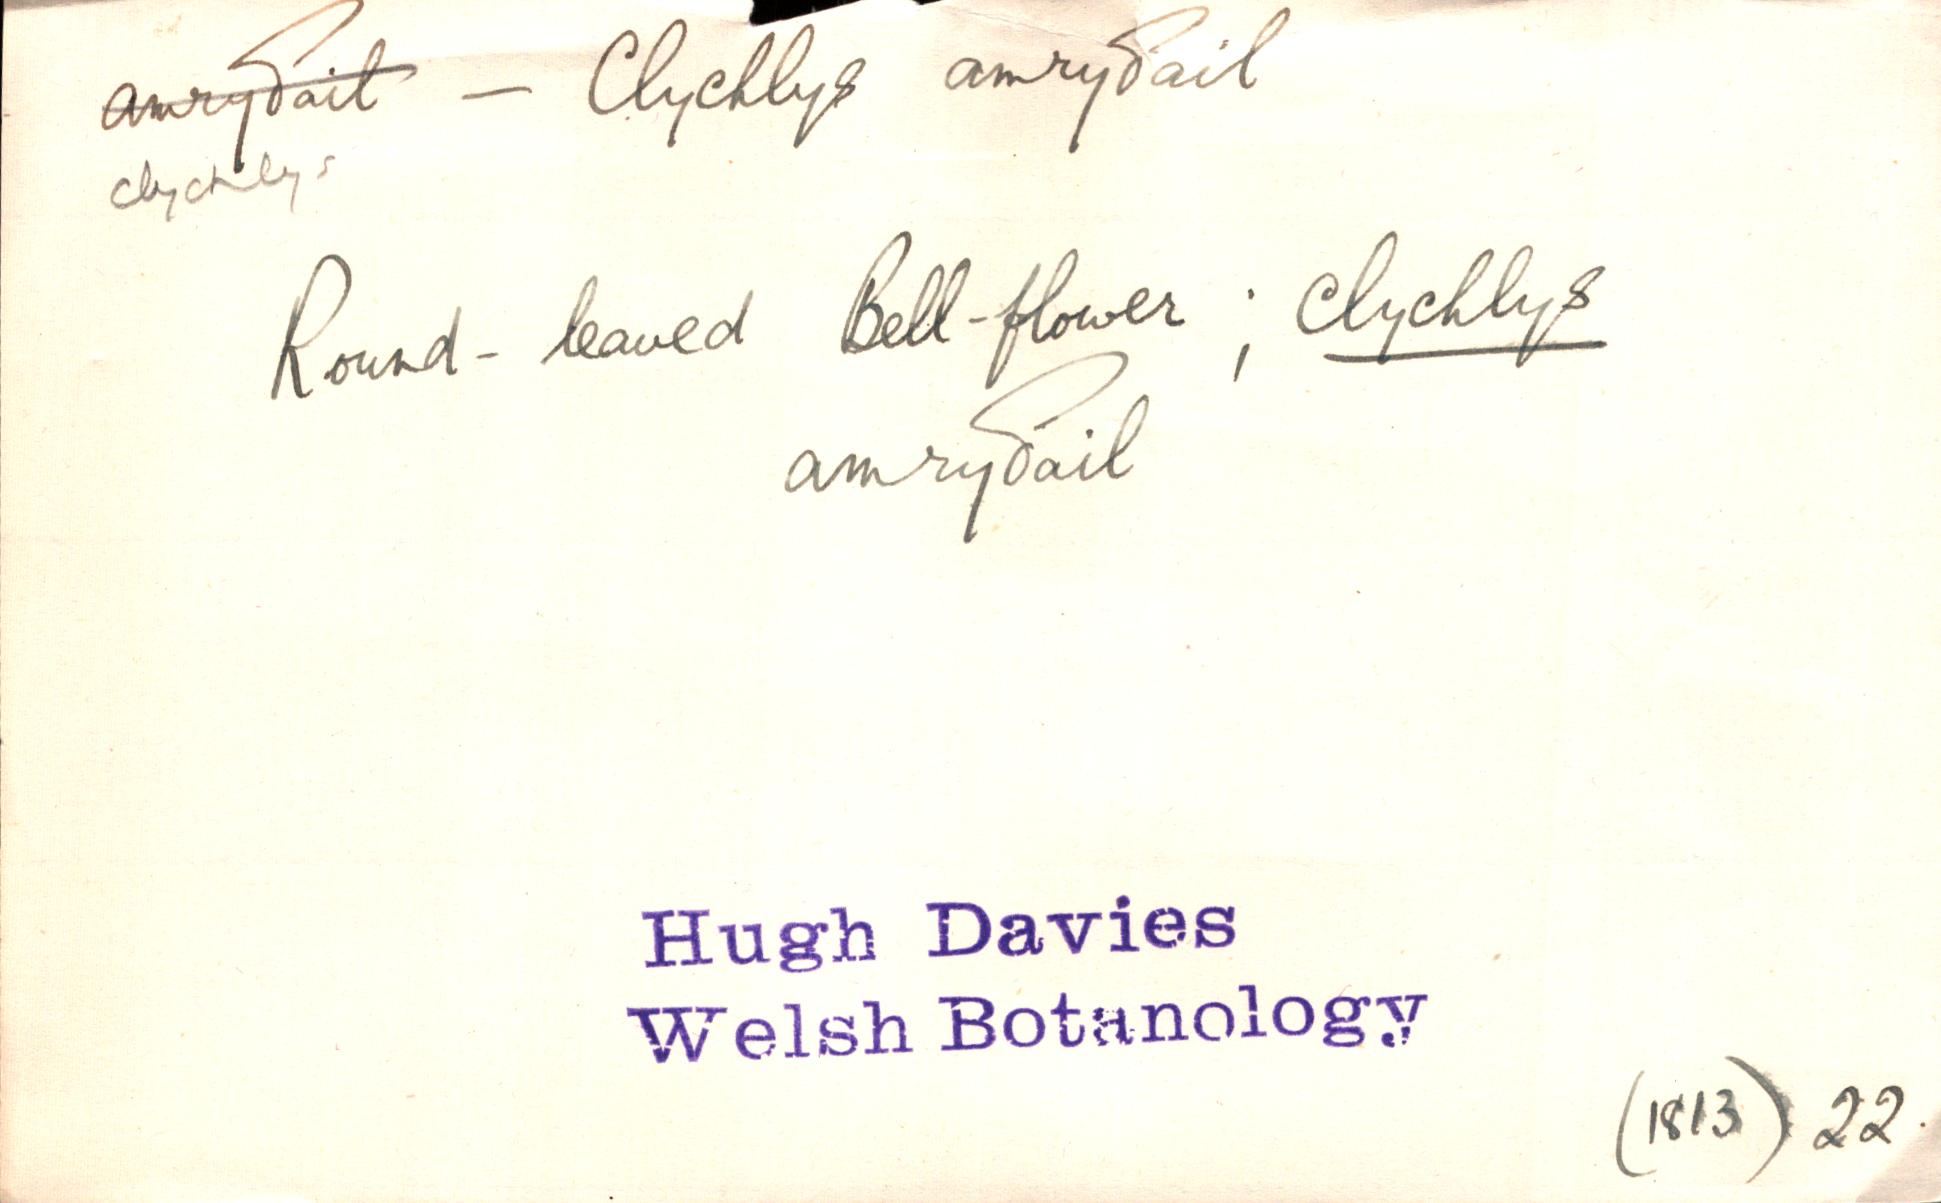 amryδail — Clychlys amryδail
clychlys
Round-leaved Bell-flower ; clychlys
amryδail
Hugh Davies
Welsh Botanology
(1813) 22.